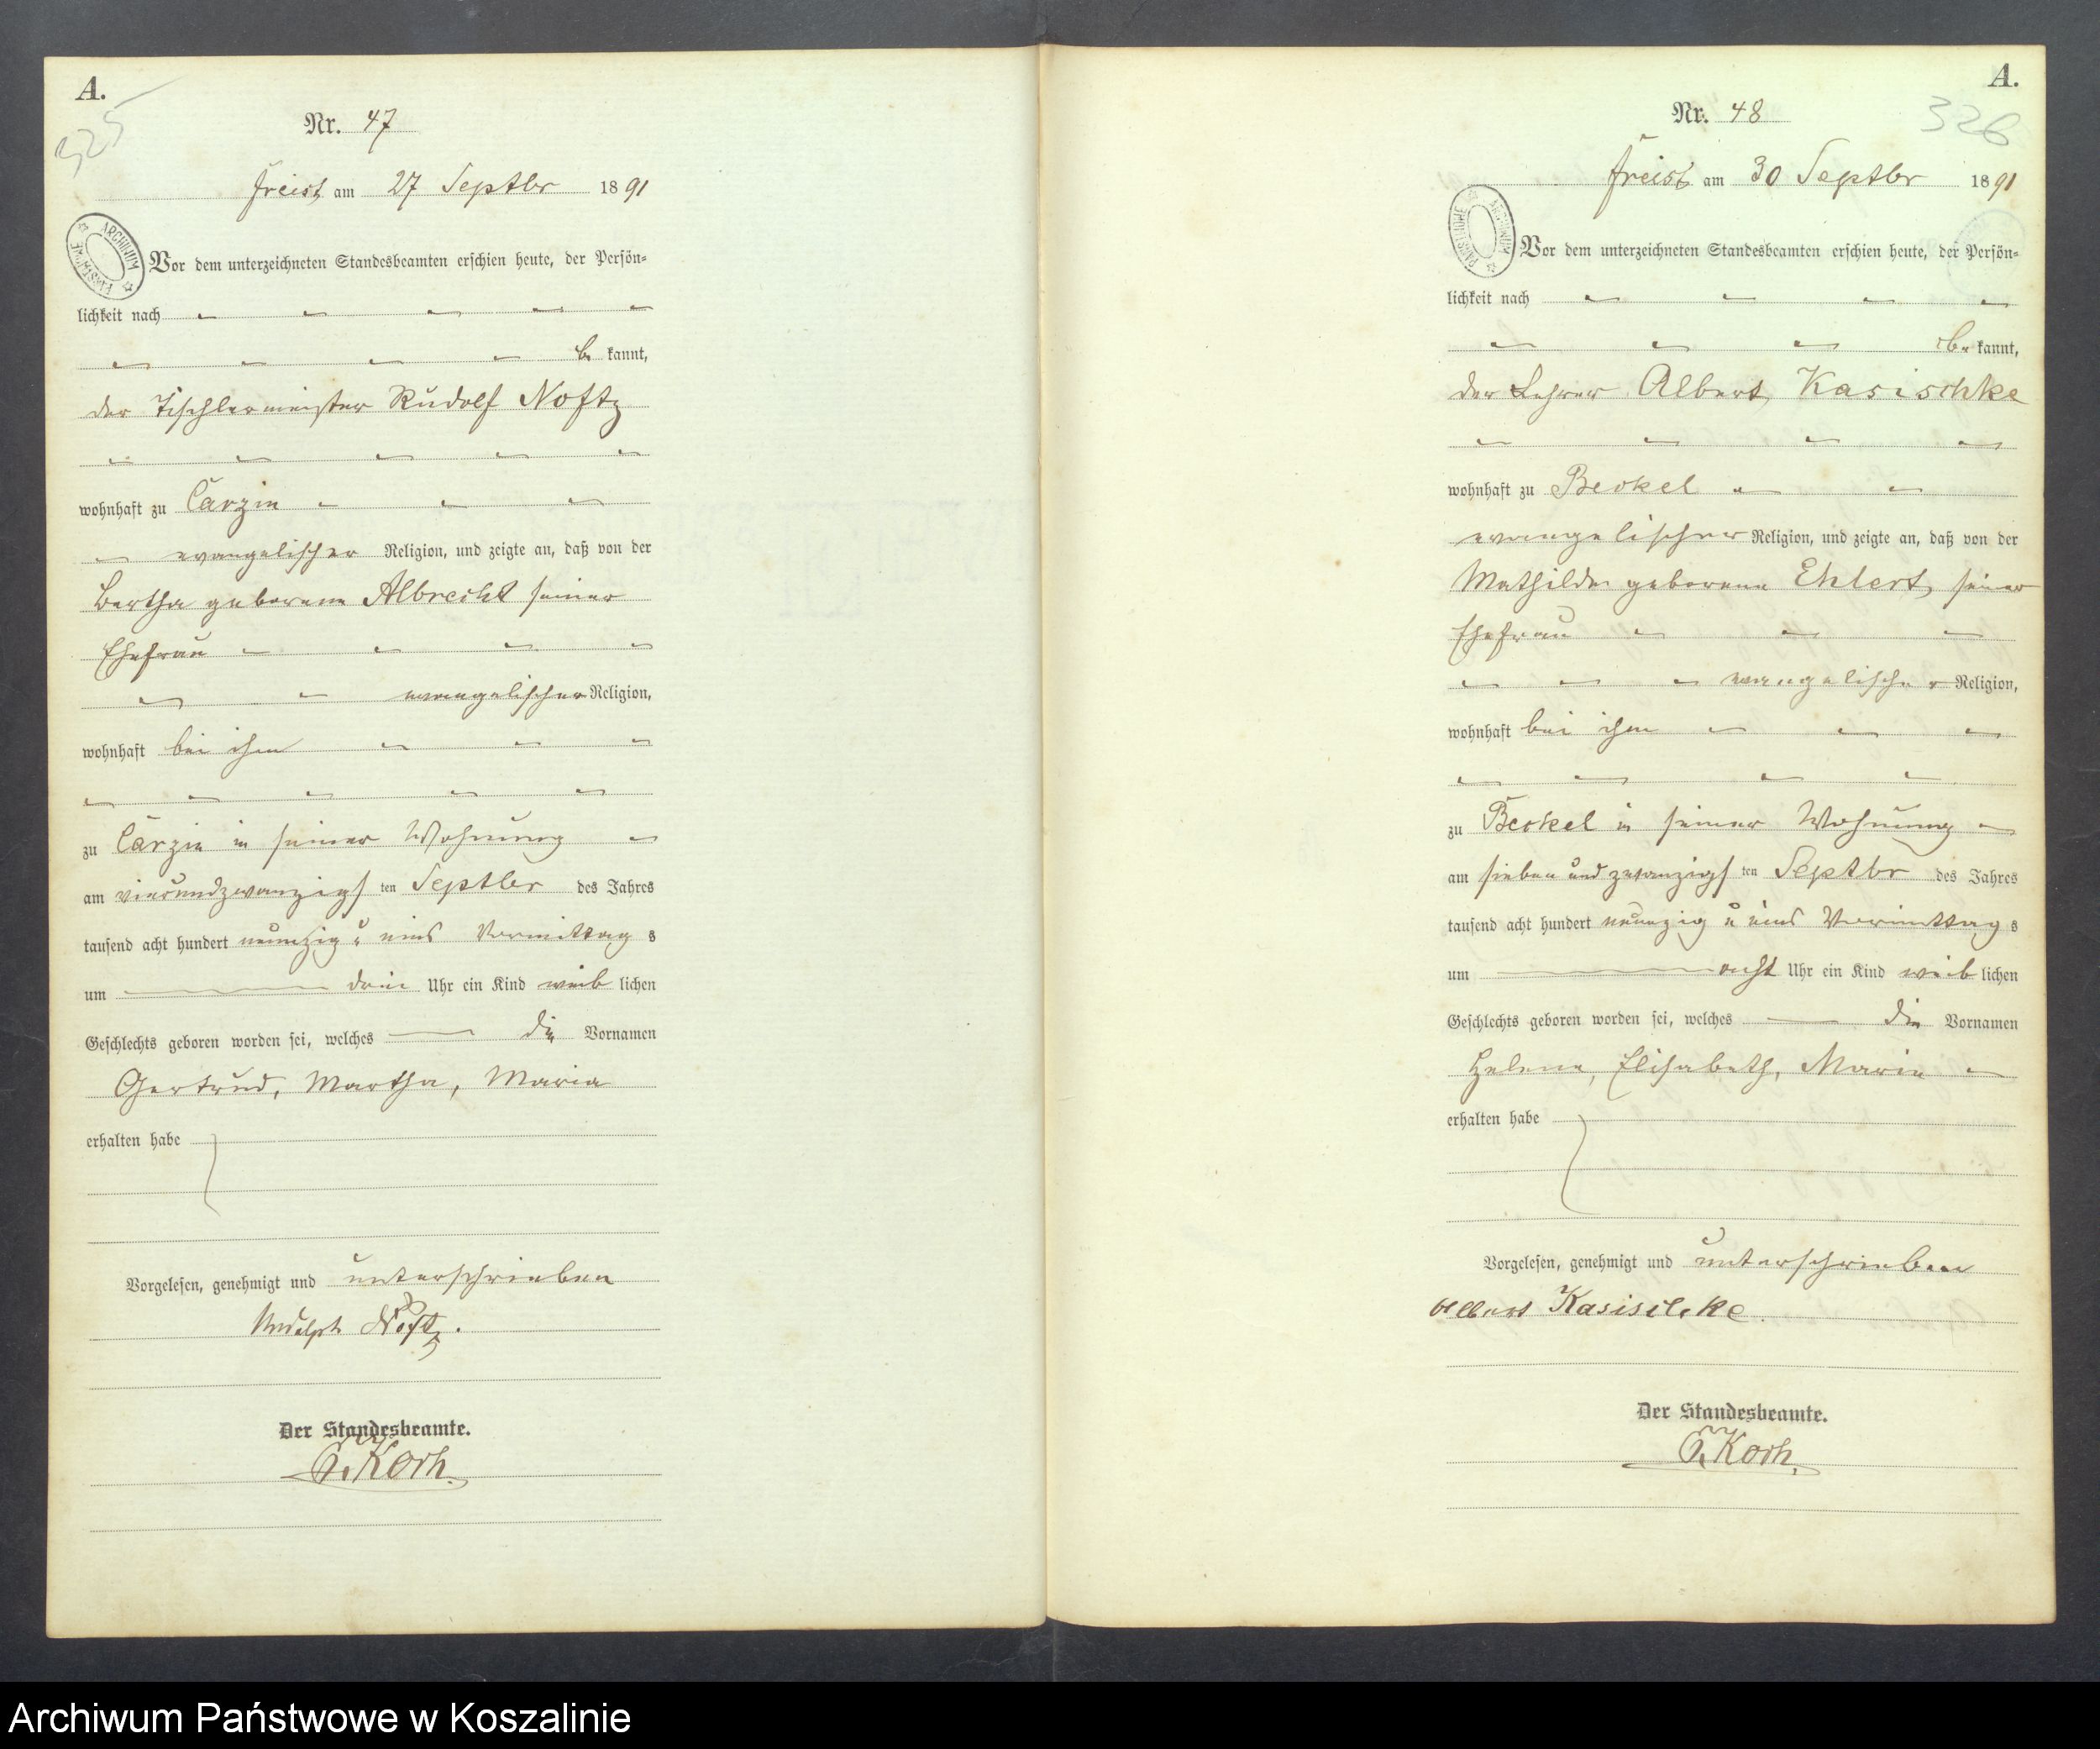 A.
325
Nr. 47
Freist am 27 Septbr 1891
ARCHIWUM PAŃSTWOWE
Vor dem unterzeichneten Standesbeamten erschien heute, der Persön-
lichkeit nach
be kannt,
der Tischlermeister Rudolf Noftz
wohnhaft zu Carzin
evangelischer Religion, und zeigte an, daß von der
Bertha geborene Albrecht seiner
Ehefrau
evangelischer Religion,
wohnhaft bei ihm
zu Carzin in seiner Wohnung
am vierundzwanzigs ten Septbr des Jahres
tausend acht hundert neunzig u eins Vormittag s
um drei Uhr ein Kind weib lichen
Geschlechts geboren worden sei, welches die Vornamen
Gertrud, Martha, Maria
erhalten habe
Vorgelesen, genehmigt und unterschrieben
Rudolph Noftz.
Der Standesbeamte.
Koch.
A.
326
Nr. 48
Freist am 30 Septbr 1891
ARCHIWUM PAŃSTWOWE
Vor dem unterzeichneten Standesbeamten erschien heute, der Persön-
lichkeit nach
be kannt,
der Lehrer Albert Kasischke
wohnhaft zu Beckel
evangelischer Religion, und zeigte an, daß von der
Mathilde geborene Ehlert, seiner
Ehefrau
evangelischer Religion,
wohnhaft bei ihm
zu Beckel in seiner Wohnung
am sieben und zwanzigs ten Septbr des Jahres
tausend acht hundert neunzig u eins Vormittag s
um acht Uhr ein Kind weib lichen
Geschlechts geboren worden sei, welches die Vornamen
Helene, Elisabeth, Marie
erhalten habe
Vorgelesen, genehmigt und unterschrieben
Albert Kasischke.
Der Standesbeamte.
Koch.
Archiwum Państwowe w Koszalinie